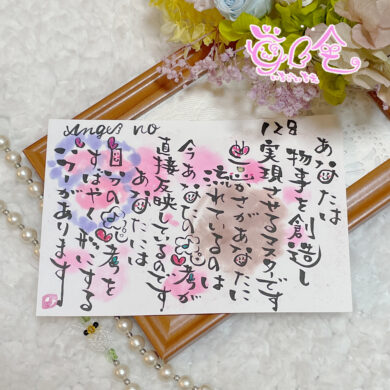 Angel no 128
あなたは
物事を創造し
実現させるマスターです
豊かさがあなたに
流れているのは
今あなたの思考が
直接反映しているのです
あなたには
自分の思考を
すばやく にする
があります